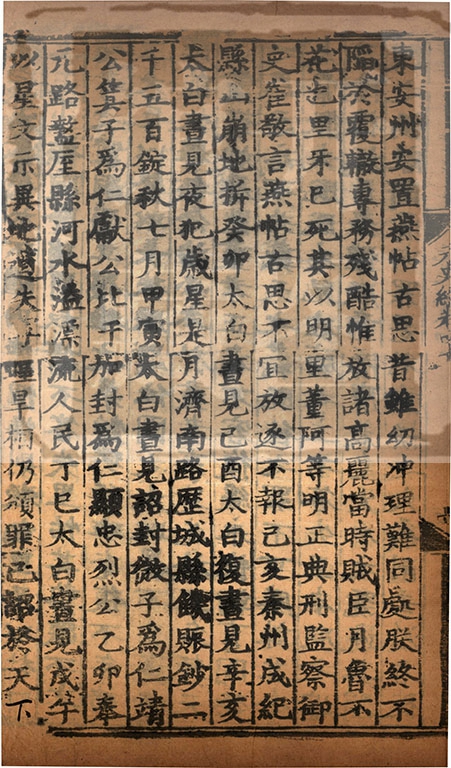 東安州安置燕帖古思昔雖幼冲理難同處朕終不
陷於覆轍專務殘酷惟放諸高麗當時賊臣月魯不
花也里牙巳死其以明里董阿等明正典刑監察御
史崔敬言燕帖古思不宜放逐不報己亥秦州成紀
縣山崩地拆癸卯太白晝見己酉太白復晝見辛亥
太白晝見夜犯歲星是月濟南路歷城縣饑賑鈔二
千五百錠秋七月甲寅太白晝見詔封微子為仁靖
公箕子為仁獻公比干加封為仁顯忠烈公乙卯奉
元路盩厔縣河水溢漂流人民丁巳太白晝見戊午
以星文示異地道失寧蝗旱相仍頒罪己詔於天下